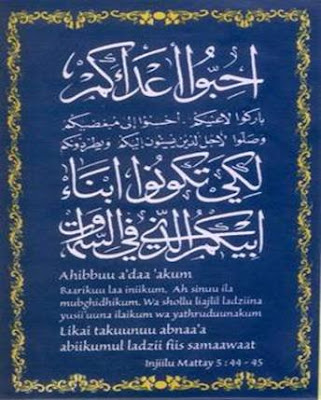 احبّوا اعداءكم
باركوا لاعنيكم. احسنوا إلى مبغضيكم
وصلّوا لأجل الذين يسيئون إليكم ويطردونكم
لكي تكونوا ابناء
ابيكم الذي في السماوات
Ahibbuu a'daa 'akum
Baarikuu laa iniikum, Ah sinuu ila
mubghidhikum. Wa shollu liajlil ladziina
yusii'uuna ilaikum wa yathruduunakum
Likai takuunuu abnaa'a
abiikumul ladzii fiis samaawaat
Injiilu Mattay 5 : 44 - 45